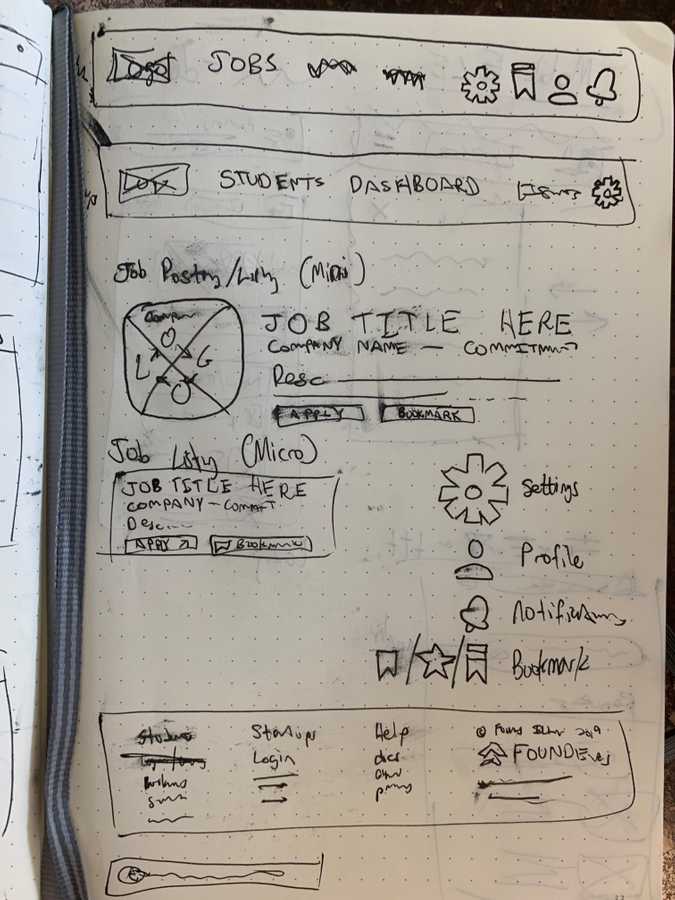 Logo JOBS
Logo STUDENTS DASHBOARD
Job Posting/Listing (Mini)
Company
LOGO
JOB TITLE HERE
COMPANY NAME — COMMITMENT
Desc
APPLY BOOKMARK
Job Listing (Micro)
JOB TITLE HERE
COMPANY — COMMIT
Desc
APPLY Bookmark
Settings
Profile
Notifications
Bookmark
Students Startups Help
Login docs